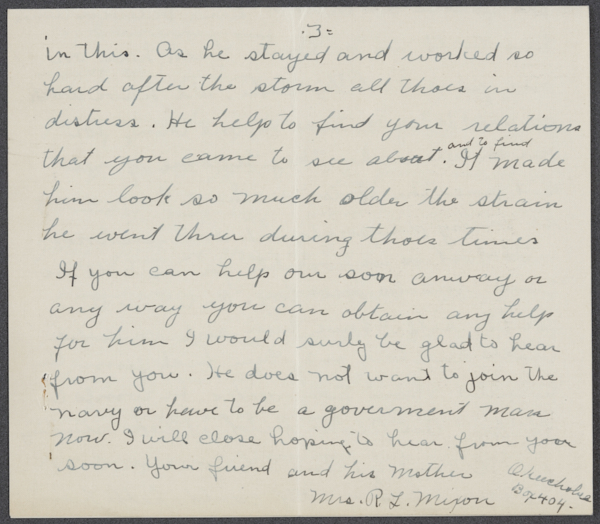 .3=
in this. As he stayed and worked so
hard after the storm all thoes in
distress. He help to find your relations
and to find
that you came to see about. It made
him look so much older the strain
he went thru during thoes times
If you can help our soon anway or
any way you can obtain any help
for him I would surly be glad to hear
from you. He does not want to join the
navy or have to be a goverment man
now. I will close hoping to hear from you
soon. Your friend and his Mother
Mrs. R. L. Mixon
Okeechobee
Box 404.